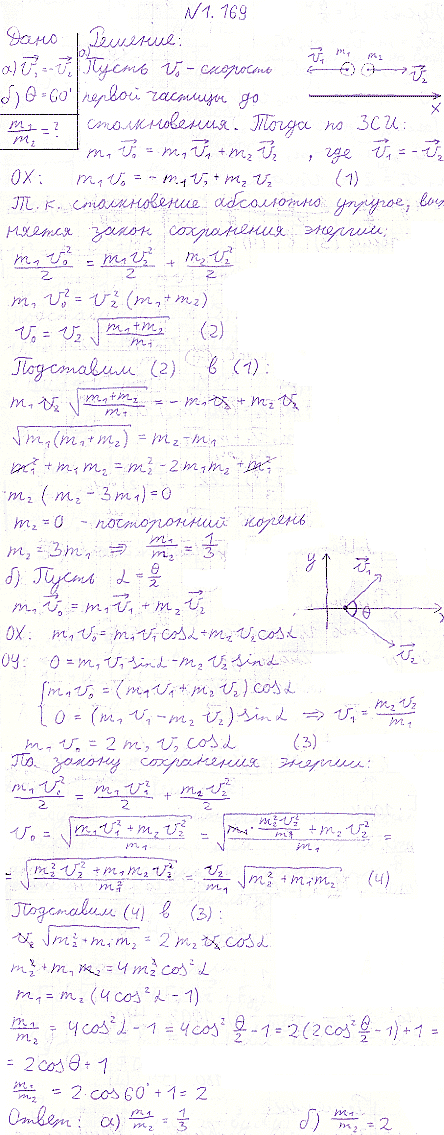 N1.169
Дано
Решение:
а) v⃗₁=-v⃗₂
б) θ=60°
m₁/m₂=?
а)
Пусть v₀-скорость
первой частицы до
столкновения. Тогда по ЗСИ:
v⃗₁ m₁ m₂ v⃗₂
x
m₁v⃗₀ = m₁v⃗₁ + m₂v⃗₂ , где v⃗₁=-v⃗₂
OX: m₁v₀ = -m₁v₂ + m₂v₂ (1)
Т.к. столкновение абсолютно упругое, вып
няется закон сохранения энергии:
m₁v₀²/2 = m₁v₂²/2 + m₂v₂²/2
m₁v₀² = v₂²(m₁+m₂)
v₀ = v₂ √((m₁+m₂)/m₁) (2)
Подставим (2) в (1):
m₁v₂ √((m₁+m₂)/m₁) = -m₁v₂ + m₂v₂
√(m₁(m₁+m₂)) = m₂-m₁
m₁² + m₁m₂ = m₂² - 2m₁m₂ + m₁²
m₂(m₂-3m₁)=0
m₂=0 - посторонний корень
m₂=3m₁ ⇒ m₁/m₂ = 1/3
б) Пусть α=θ/2
m₁v⃗₀ = m₁v⃗₁ + m₂v⃗₂
y v⃗₁ θ v⃗₂
OX: m₁v₀=m₁v₁cosα+m₂v₂cosα
OY: 0=m₁v₁sinα-m₂v₂sinα
{m₁v₀=(m₁v₁+m₂v₂)cosα
0=(m₁v₁-m₂v₂)sinα ⇒ v₁=m₂v₂/m₁
m₁v₀=2m₁v₁cosα (3)
По закону сохранения энергии:
m₁v₀²/2 = m₁v₁²/2 + m₂v₂²/2
v₀ = √((m₁v₁²+m₂v₂²)/m₁) = √((m₁·m₂²v₂²/m₁²+m₂v₂²)/m₁) =
= √((m₂²v₂²+m₁m₂v₂²)/m₁²) = v₂/m₁ √(m₂²+m₁m₂) (4)
Подставим (4) в (3):
v₂ √(m₂²+m₁m₂) = 2m₂v₂cosα
m₂²+m₁m₂=4m₂²cos²α
m₁=m₂(4cos²α-1)
m₁/m₂ = 4cos²α-1=4cos² θ/2-1=2(2cos² θ/2-1)+1=
= 2cosθ+1
m₁/m₂ = 2·cos60°+1=2
Ответ: а) m₁/m₂=1/3 б) m₁/m₂=2